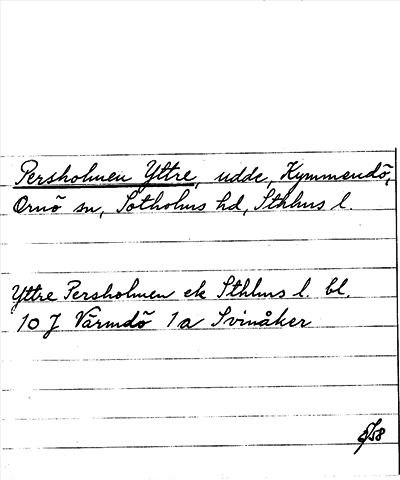 Persholmen Yttre, udde, Kymmendö,
Ornö sn, Sotholms hd, Sthlms l.
Yttre Persholmen ek Sthlms l. bl.
10 J Värmdö 1a Svinåker